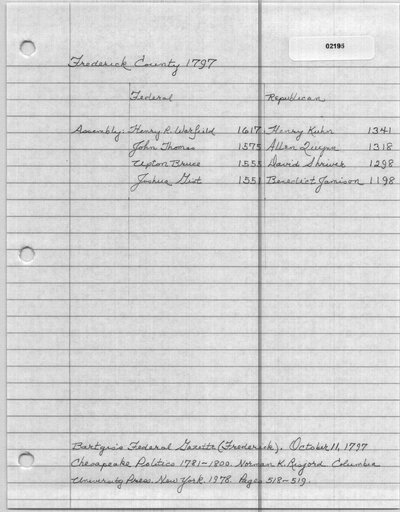 02195
Frederick County 1797
Federal Republican
Assembly: Henry R. Warfield 1617 Henry Kuhn 1341
John Thomas 1575 Allen Quynn 1318
Upton Bruce 1555 David Shriver 1298
Joshua Gist 1551 Benedict Jamison 1198
Bartgis's Federal Gazette (Frederick). October 11, 1797
Chesapeake Politics 1781-1800. Norman K. Risjord. Columbia
University Press. New York. 1978. Pages 518-519.